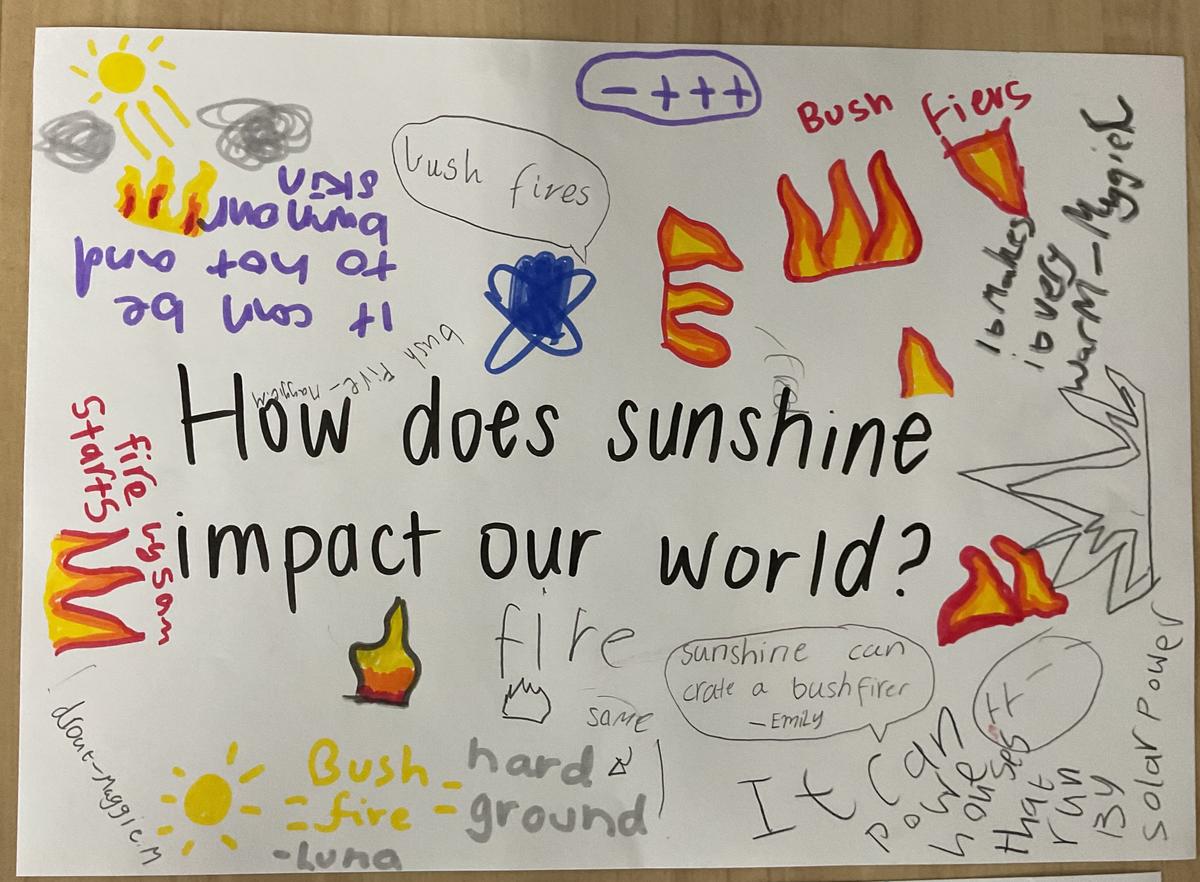 - + + +
Bush Fiers
bush fires
It can be
to hot and
burn our
skin
ib makes
ib very
warm - Maggie R
bush fire - Maggie.M
How does sunshine
impact our world?
fire by sam
starts
fire
same
sunshine can
crate a bushfirer
- EMILY
drout - Maggie.M
Bush - hard
= fire = ground
- Luna
It can
poure
houses
that
run
By
solar power